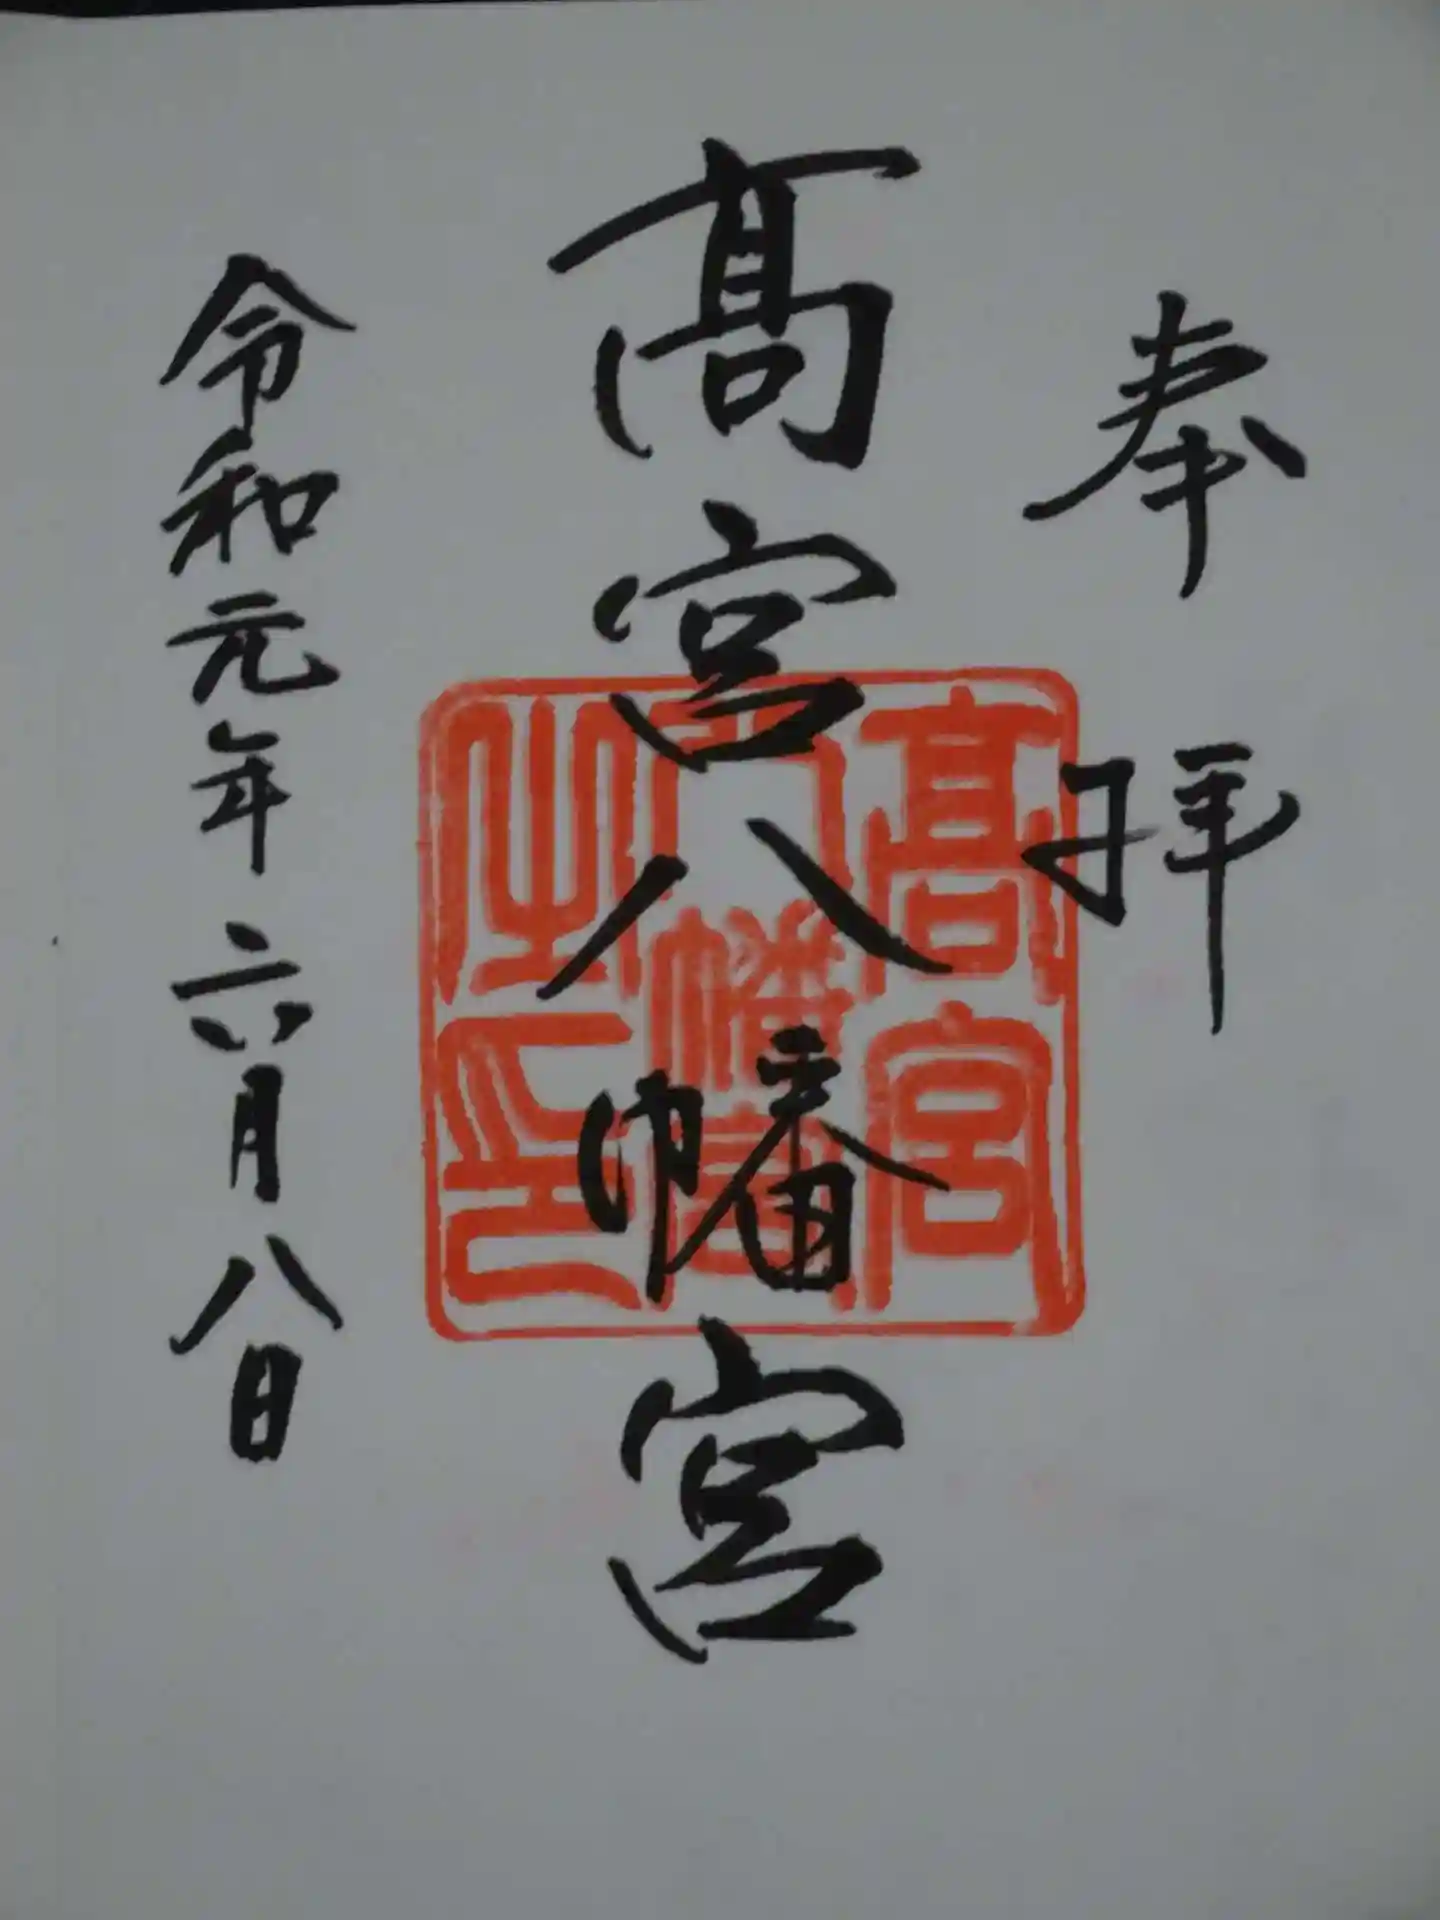 奉拝
髙宮八幡宮
髙宮
八幡宮
之印
令和元年六月八日